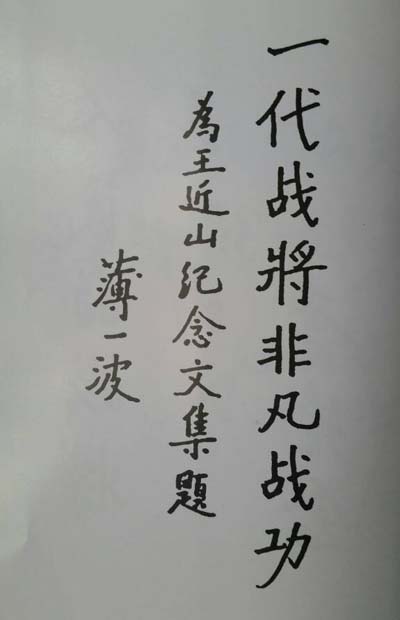 一代战將非凡战功
為王近山纪念文集题
薄一波